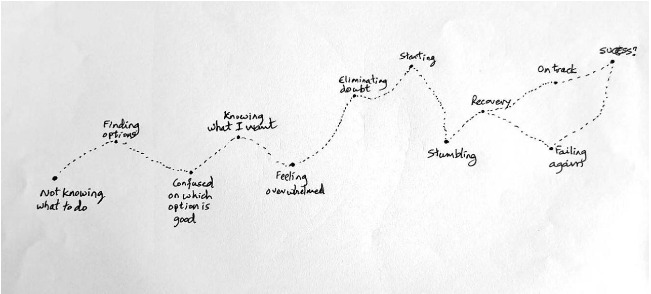 Not knowing
what to do
Finding
options
Confused
on which
option is
good
Knowing
what I want
Feeling
overwhelmed
Eliminating
doubt
Starting
Stumbling
Recovery
On track
Failing
again
success?